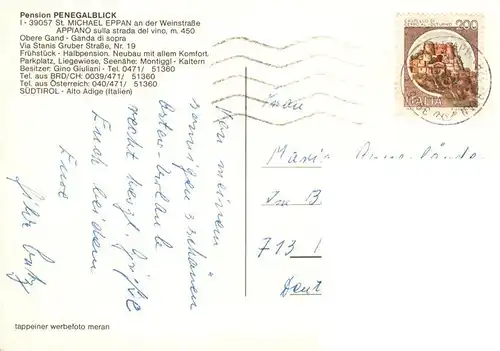 Pension PENEGALBLICK
I - 39057 St. MICHAEL EPPAN an der Weinstraße
APPIANO sulla strada del vino, m. 450
Obere Gand - Ganda di sopra
Via Stanis Gruber Straße, Nr. 19
Frühstück - Halbpension. Neubau mit allem Komfort.
Parkplatz, Liegewiese, Seenähe: Montiggl - Kaltern
Besitzer: Gino Giuliani - Tel. 0471/ 51360
Tel. aus BRD/CH: 0039/471/ 51360
Tel. aus Österreich: 040/471/ 51360
SÜDTIROL - Alto Adige (Italien)
Von meinem
sonnigen & schönen
Urlaub
recht herzl. Grüße
Euch beiden
Eure
200
ITALIA
Frau
Maria
Im B
713
Deut
tappeiner werbefoto meran